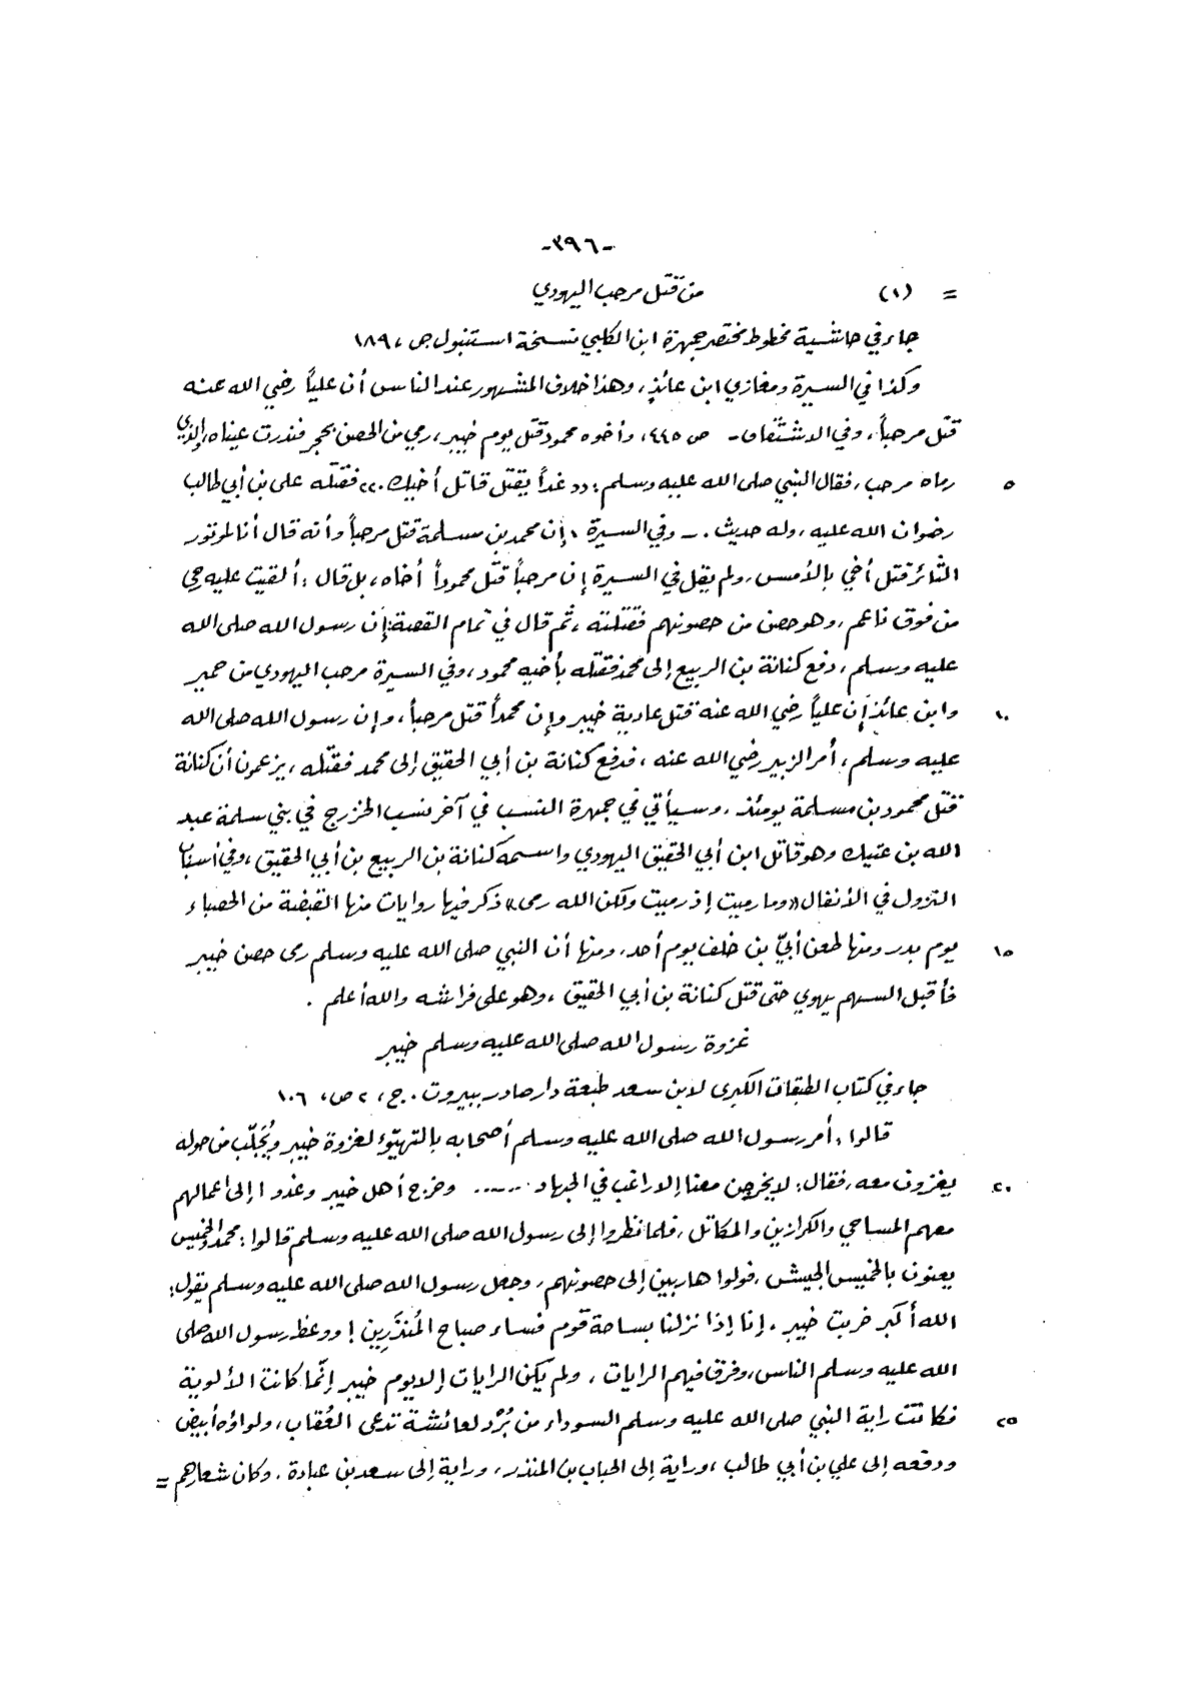 -٣٩٦-
= (١) من قتل مرحب اليهودي
جاء في حاشية مخطوط مختصر جمهرة ابن الكلبي نسخة استنبول ص، ١٨٩
وكذا في السيرة ومغازي ابن عائذٍ، وهذا خلاف المشهور عند الناس أن علياً رضي الله عنه
قتل مرحباً، وفي الاشتقاق - ص ٤٤٥، وأخوه محمود قتل يوم خيبر، رمي من الحصن بحجر فندرت عيناه، والذي
٥ رماه مرحب، فقال النبي صلى الله عليه وسلم: «غداً يقتل قاتل أخيك.» فقتله على بن أبي طالب
رضوان الله عليه، وله حديث. - وفي السيرة، إن محمد بن مسلمة قتل مرحباً وأنه قال أنا الموتور
الثائر قتل أخي بالأمس، ولم يقل في السيرة إن مرحباً قتل محموداً أخاه، بل قال: ألقيت عليه رحى
من فوق ناعم، وهو حصن من حصونهم فقتلته، ثم قال في تمام القصة: إن رسول الله صلى الله
عليه وسلم، دفع كنانة بن الربيع إلى محمد فقتله بأخيه محمود، وفي السيرة مرحب اليهودي من حمير
١٠ وابن عائذ إن علياً رضي الله عنه قتل عادية خيبر وإن محمداً قتل مرحباً، وإن رسول الله صلى الله
عليه وسلم، أمر الزبير رضي الله عنه، فدفع كنانة بن أبي الحقيق إلى محمد فقتله، يزعمون أن كنانة
قتل محمود بن مسلمة يومئذ، وسيأتي في جمهرة النسب في آخر نسب الخزرج في بني سلمة عبد
الله بن عتيك وهو قاتل ابن أبي الحقيق اليهودي واسمه كنانة بن الربيع بن أبي الحقيق، وفي أسباب
النزول في الأنفال «وما رميت إذ رميت ولكن الله رمى» ذكر فيها روايات منها القبضة من الحصباء
١٥ يوم بدر ومنها طعن أبيّ بن خلف يوم أحد، ومنها أن النبي صلى الله عليه وسلم رمى حصن خيبر
فأقبل السهم يهوي حتى قتل كنانة بن أبي الحقيق، وهو على فراشه والله أعلم.
غزوة رسول الله صلى الله عليه وسلم خيبر
جاء في كتاب الطبقات الكبرى لابن سعد طبعة دار صادر ببيروت. ج، ٢ ص، ١٠٦
قالوا، أمر رسول الله صلى الله عليه وسلم أصحابه بالتهيّؤ لغزوة خيبر ويُجَلّب من حوله
٢٠ يغزون معه، فقال: لا يخرجن معنا إلا راغب في الجهاد ...... وخرج أهل خيبر وغدوا إلى أعمالهم
معهم المساحي والكرازين والمكاتل، فلما نظروا إلى رسول الله صلى الله عليه وسلم قالوا: محمد والخميس
يعنون بالخميس الجيش، فولوا هاربين إلى حصونهم، وجعل رسول الله صلى الله عليه وسلم يقول:
الله أكبر خربت خيبر، إنا إذا نزلنا بساحة قوم فساء صباح المُنذَرين! ووعظ رسول الله صلى
الله عليه وسلم الناس، وفرق فيهم الرايات، ولم يكن الرايات إلا يوم خيبر إنّما كانت الألوية
٢٥ فكانت راية النبي صلى الله عليه وسلم السوداء من بُرْد لعائشة تدعى العُقاب، ولواؤه أبيض
ودفعه إلى علي بن أبي طالب، وراية إلى الحباب بن المنذر، وراية إلى سعد بن عبادة. وكان شعارهم =